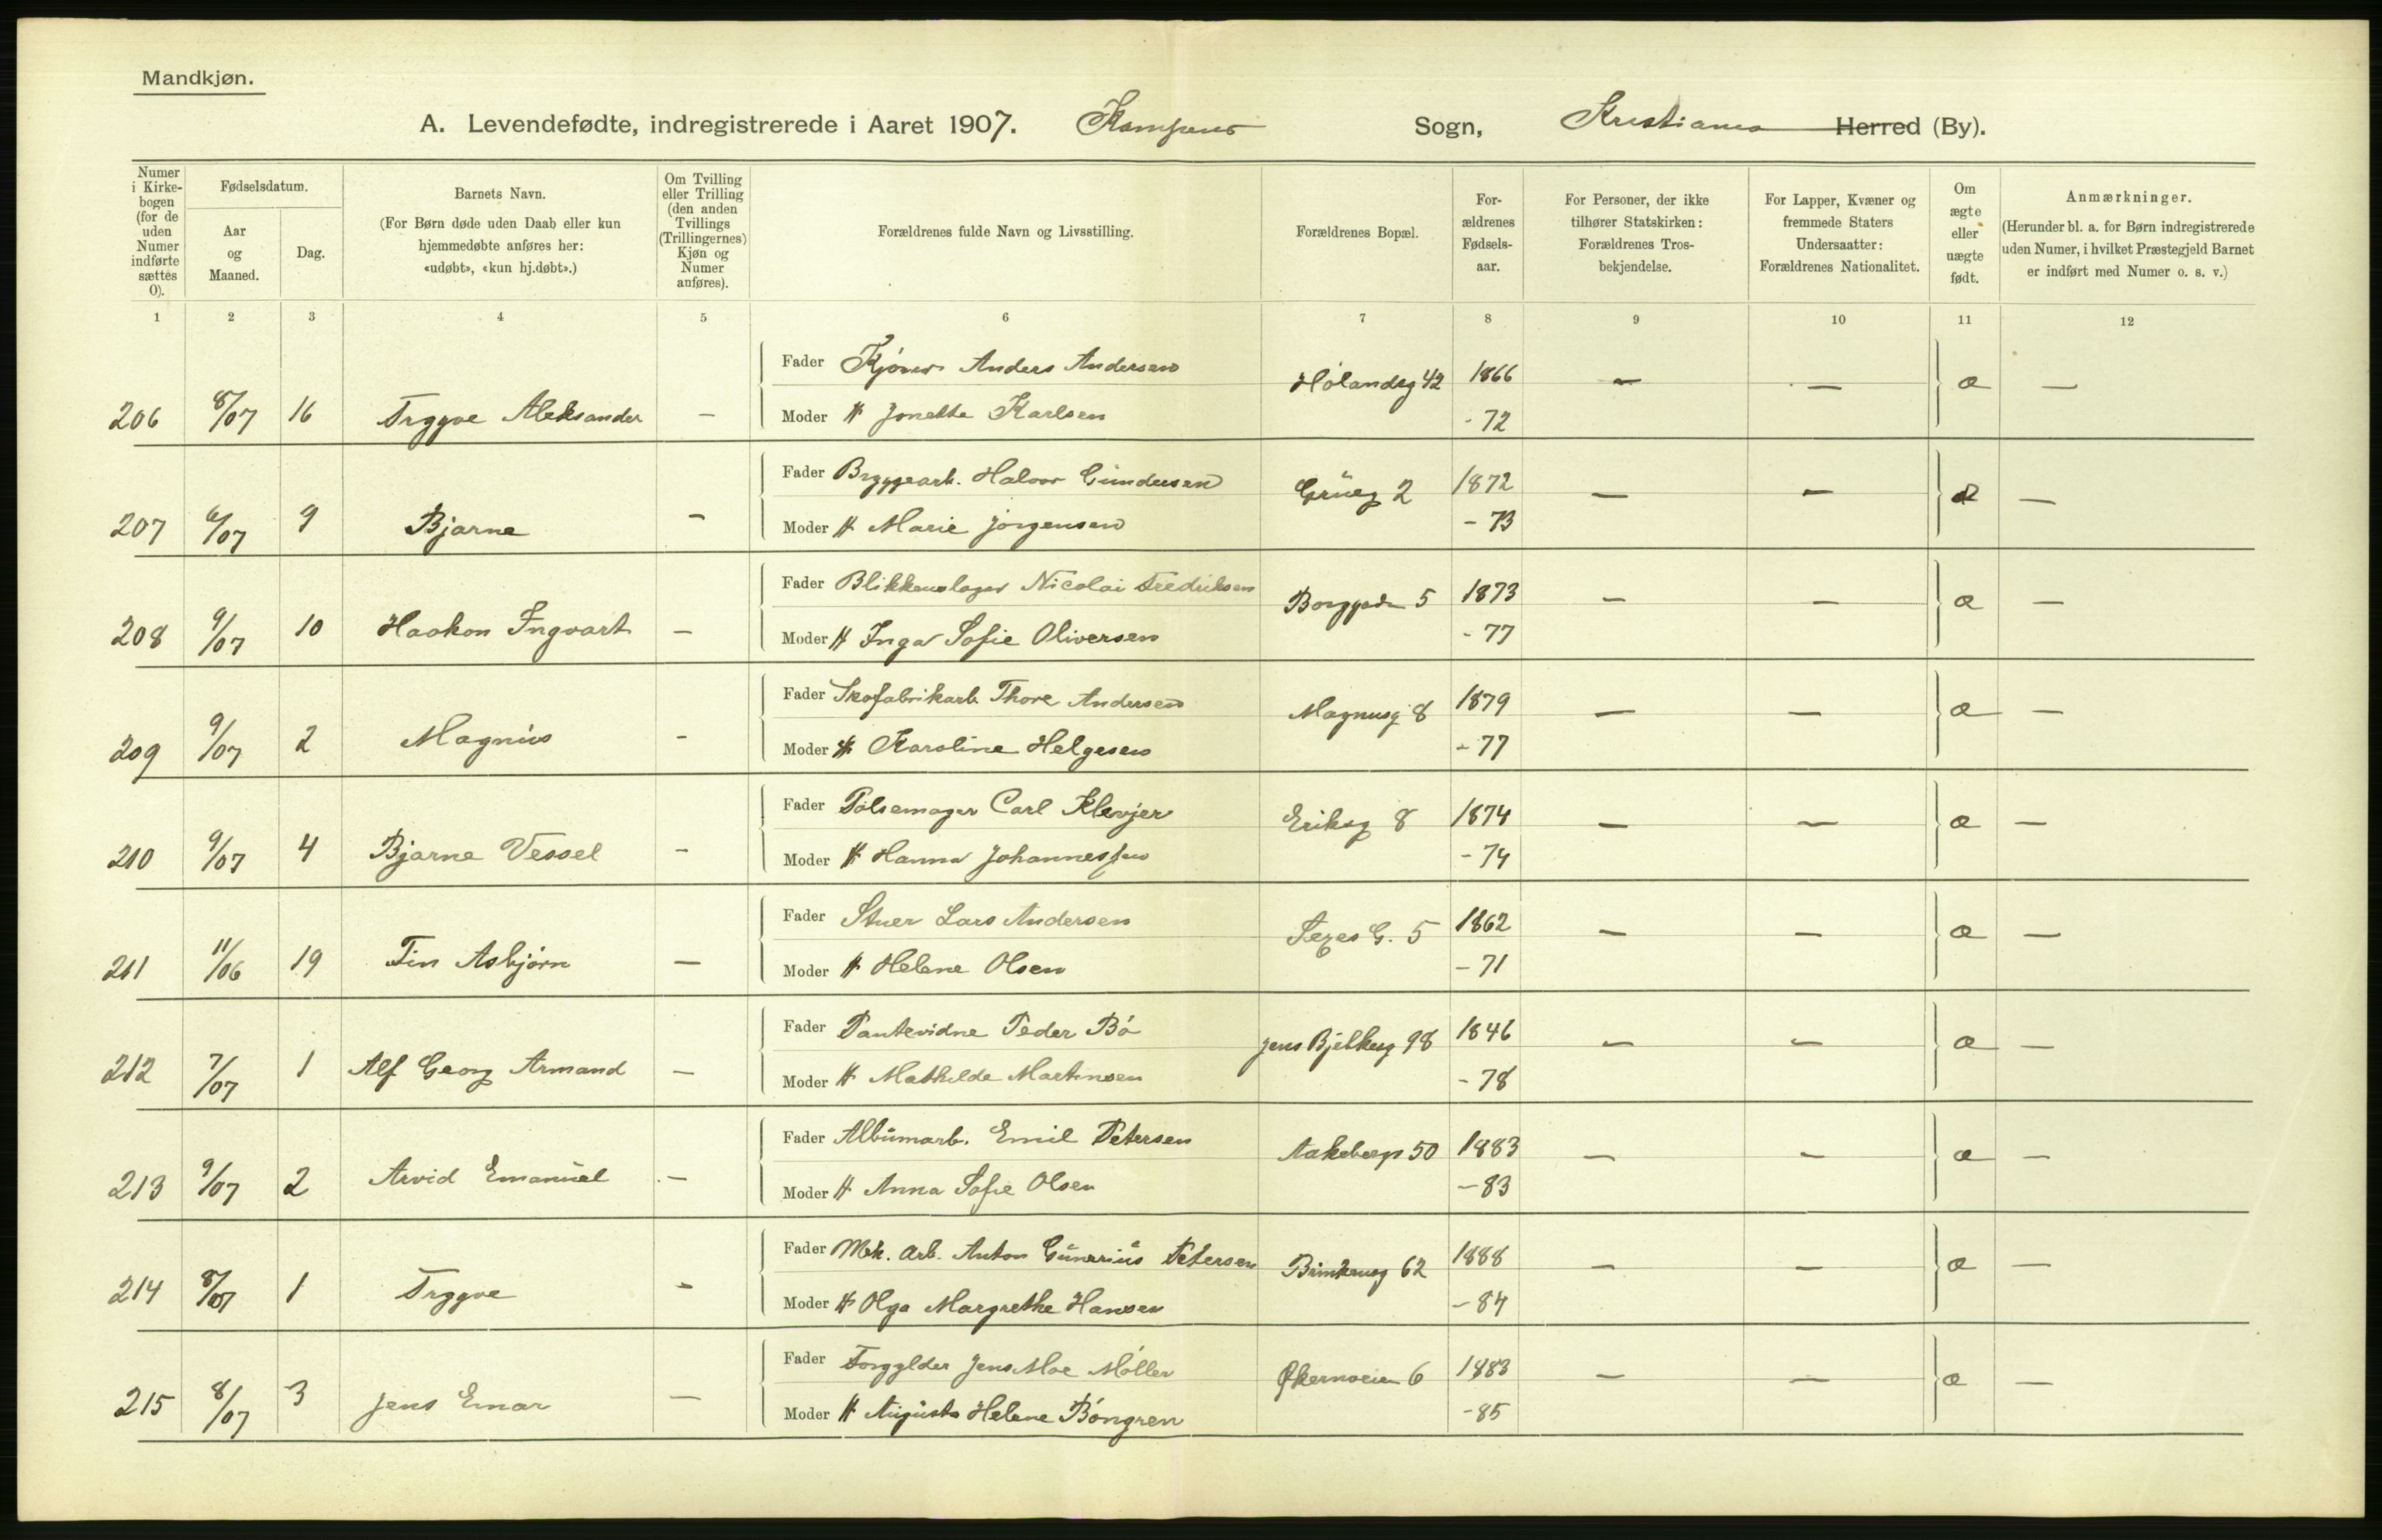 Mandkjøn.
A. Levendefødte, indregistrerede i Aaret 1907. Kampens Sogn, Kristiania Herred (By).
Numer i Kirkebogen (for de uden Numer indførte sættes 0).
Fødselsdatum.
Aar og Maaned.
Dag.
Barnets Navn.
(For Børn døde uden Daab eller kun hjemmedøbte anføres her: «udøbt», «kun hj.døbt».)
Om Tvilling eller Trilling (den anden Tvillings (Trillingernes) Kjøn og Numer anføres).
Forældrenes fulde Navn og Livsstilling.
Forældrenes Bopæl.
Forældrenes Fødselsaar.
For Personer, der ikke tilhører Statskirken: Forældrenes Trosbekjendelse.
For Lapper, Kvæner og fremmede Staters Undersaatter: Forældrenes Nationalitet.
Om ægte eller uægte født.
Anmærkninger.
(Herunder bl. a. for Børn indregistrerede uden Numer, i hvilket Præstegjeld Barnet er indført med Numer o. s. v.)
1 2 3 4 5 6 7 8 9 10 11 12
Fader Kjører Anders Andersen Hölandsg 42 1866 — — æ —
206 8/07 16 Trygve Aleksander — Moder H Jonette Karlsen - 72
Fader Bryggearb. Halvor Gundersen Grüeg 2 1872 — — æ —
207 6/07 9 Bjarne — Moder H Marie Jörgensen - 73
Fader Blikkenslager Nicolai Fredriksen Borggada 5 1873 — — æ —
208 9/07 10 Haakon Ingvart — Moder H Inga Sofie Oliversen - 77
Fader Skofabrikarb Thore Andersen Magnusg 8 1879 — — æ —
209 9/07 2 Magnus — Moder H Karoline Helgesen - 77
Fader Pölsemager Carl Klevjer Eriksg 8 1874 — — æ —
210 9/07 4 Bjarne Vessel — Moder H Hanna Johannessen - 74
Fader Stuer Lars Andersen G. 5 1862 — — æ —
211 11/06 19 Fin Asbjörn — Moder H Helene Olsen - 71
Fader Pantevidne Peder Bö Jens Bjelkesg 98 1846 — — æ —
212 7/07 1 Alf Georg Armand — Moder H Mathilde Martinsen - 78
Fader Albumarb. Emil Petersen Aakebergv 50 1883 — — æ —
213 9/07 2 Arvid Emanuel — Moder H Anna Sofie Olsen - 83
Fader Mek. Arb. Anton Gunerius Petersen Brinkensg 62 1888 — — æ —
214 8/07 1 Trygve — Moder H Olga Margrethe Hansen - 84
Fader Forgylder Jens Moe Möller Økernveien 6 1883 — — æ —
215 8/07 3 Jens Einar — Moder H Augusta Helene Böngren - 85